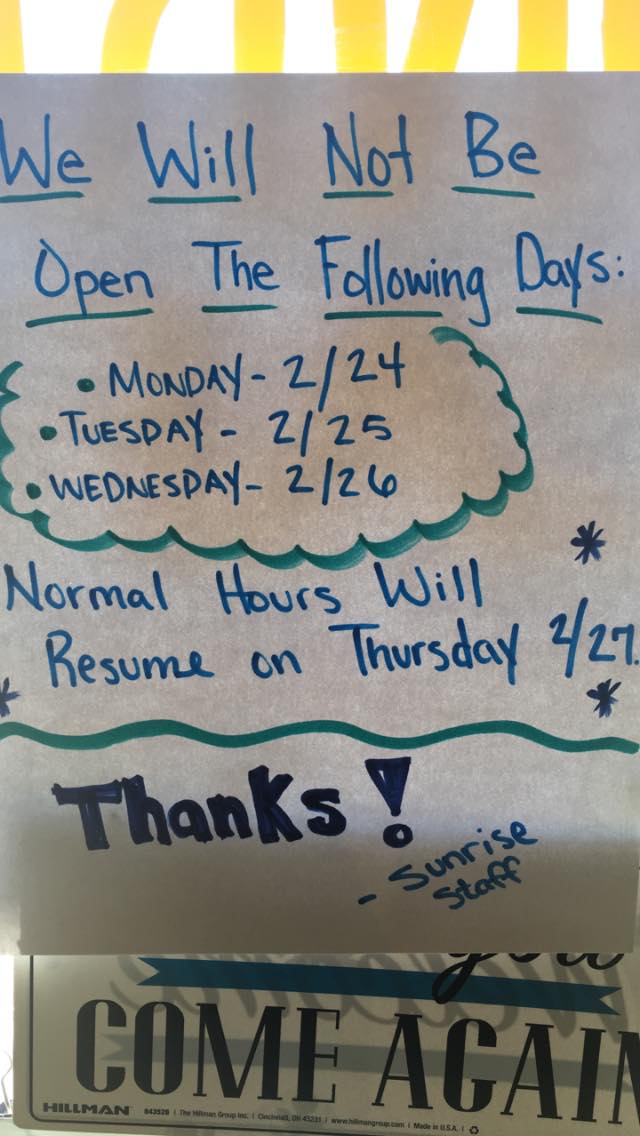 We Will Not Be
Open The Following Days:
• MONDAY - 2/24
• TUESDAY - 2/25
• WEDNESDAY - 2/26
Normal Hours Will
Resume on Thursday 2/27.
Thanks!
- Sunrise
Staff
you
COME AGAIN
HILLMAN 843528 | The Hillman Group Inc. | Cincinnati, OH 45231 | www.hillmangroup.com | Made in U.S.A. |